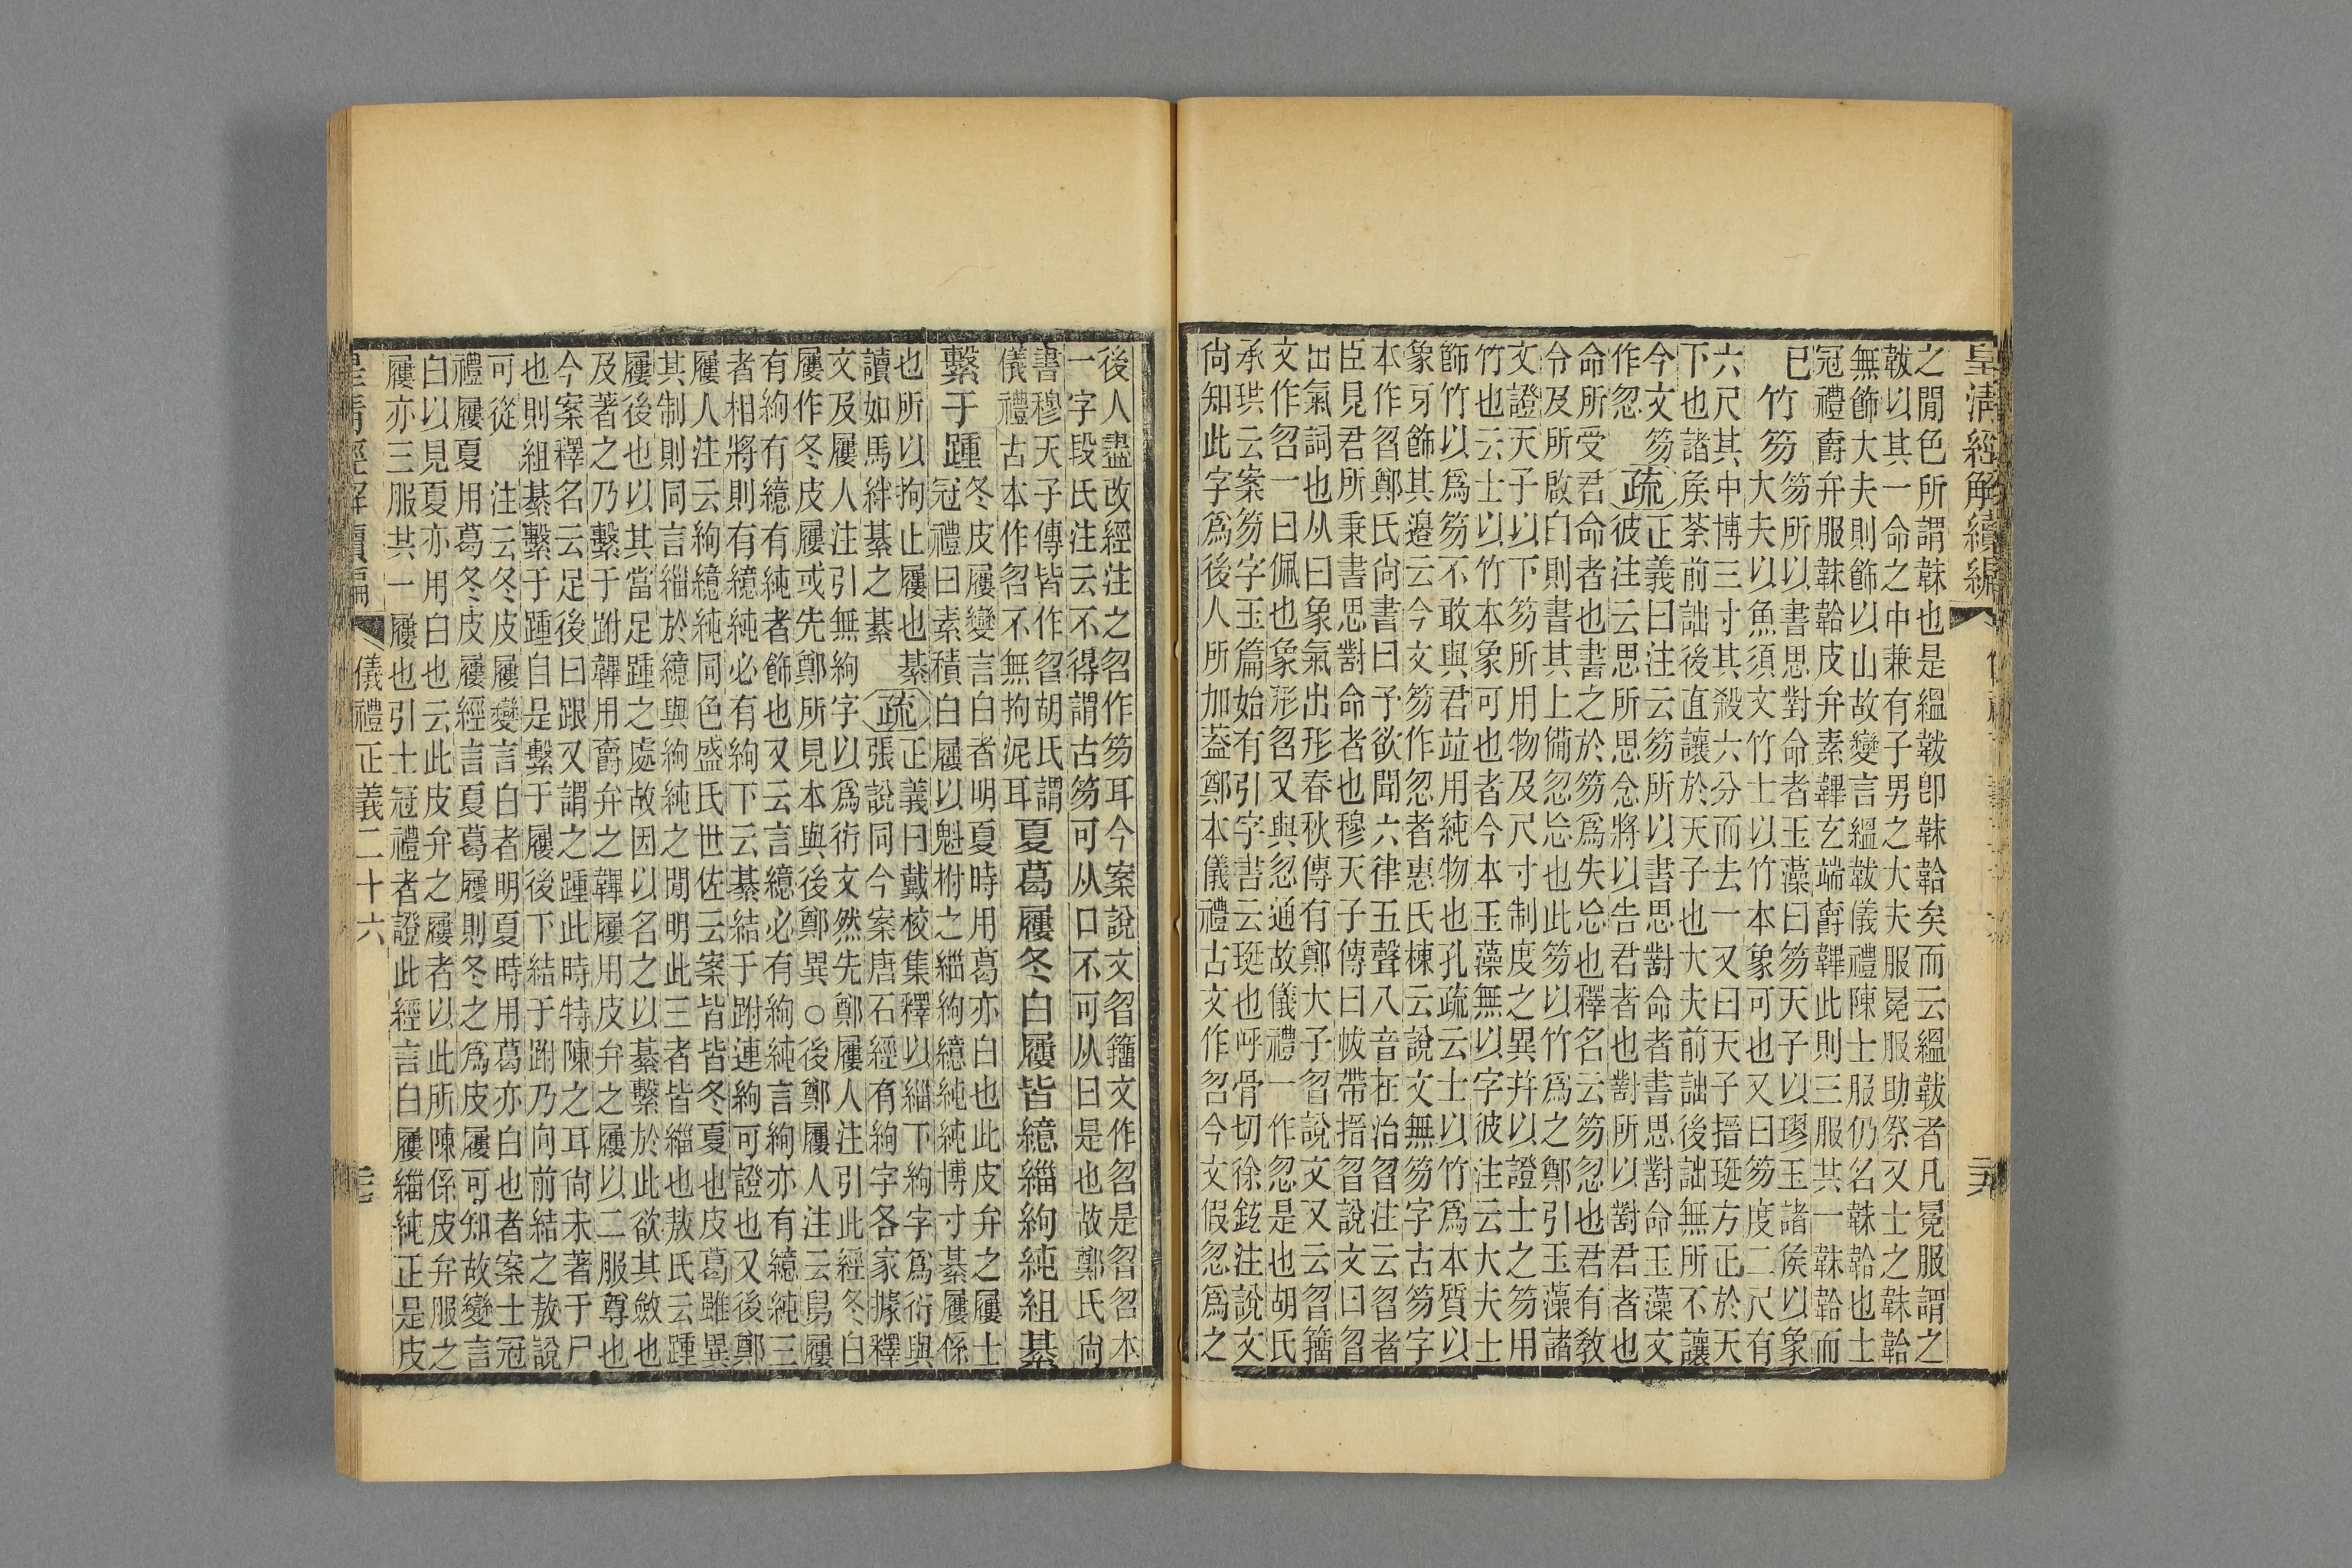 皇清經解續編
之閒色所謂韎也是縕韍卽韎韐矣而云縕韍者凡冕服謂之
韍以其一命之中兼有子男之大夫服冕服助祭又士之韎韐
無飾大夫則飾以山故變言縕韍儀禮陳士服仍名韎韐也士
冠禮爵弁服韎韐皮弁素韠玄端爵韠此則三服共一韎韐而
已
竹笏
笏所以書思對命者玉藻曰笏天子以璆玉諸侯以象
大夫以魚須文竹士以竹本象可也又曰笏度二尺有
六尺其中博三寸其殺六分而去一又曰天子搢珽方正於天
下也諸侯荼前詘後直讓於天子也大夫前詘後詘無所不讓
今文笏
作忽
疏
正義曰注云笏所以書思對命者書思對命玉藻文
彼注云思所思念將以告君者也對所以對君者也
命所受君命者也書之於笏爲失忘也釋名云笏忽也君有教
令及所啟白則書其上備忽忘也此笏以竹爲之鄭引玉藻諸
文證天子以下笏所用物及尺寸制度之異幷以證士之笏用
竹也云士以竹本象可也者今本玉藻無以字彼注云大夫士
飾竹以爲笏不敢與君竝用純物也孔疏云士以竹爲本質以
象牙飾其邊云今文笏作忽者惠氏棟云說文無笏字古笏字
本作曶鄭氏尚書曰予欲聞六律五聲八音在治曶注云曶者
臣見君所秉書思對命者也穆天子傳曰帗帶搢曶說文曰曶
出氣詞也从曰象氣出形春秋傳有鄭大子曶說文又云曶籀
文作曶一曰佩也象形曶又與忽通故儀禮一作忽是也胡氏
承珙云案笏字玉篇始有引字書云珽也呼骨切徐鉉注說文
尚知此字爲後人所加葢鄭本儀禮古文作曶今文假忽爲之
後人盡改經注之曶作笏耳今案說文曶籀文作曶是曶曶本
一字段氏注云不得謂古笏可从口不可从曰是也故鄭氏尚
書穆天子傳皆作曶胡氏謂
儀禮古本作曶不無拘泥耳
夏葛屨冬白屨皆繶緇絇純組綦
繫于踵
冬皮屨變言白者明夏時用葛亦白也此皮弁之屨士
冠禮曰素積白屨以魁柎之緇絇繶純純博寸綦屨係
也所以拘止屨也綦
讀如馬絆綦之綦
疏
正義曰戴校集釋以緇下絇字爲衍與
張說同今案唐石經有絇字各家據釋
文及屨人注引無絇字以爲衍文然先鄭屨人注引此經冬白
屨作冬皮屨或先鄭所見本與後鄭異○後鄭屨人注云舄屨
有絇有繶有純者飾也又云言繶必有絇純言絇亦有繶純三
者相將則有繶純必有絇下云綦結于跗連絇可證也又後鄭
屨人注云絇繶純同色盛氏世佐云案皆皆冬夏也皮葛雖異
其制則同言緇於繶與絇純之閒明此三者皆緇也敖氏云踵
屨後也以其當足踵之處故因以名之以綦繫於此欲其斂也
及著之乃繫于跗韠用爵弁之韠屨用皮弁之屨以二服尊也
今案釋名云足後曰跟又謂之踵此時特陳之耳尚未著于尸
也則組綦繫于踵自是繫于屨後下結于跗乃向前結之敖說
可從 注云冬皮屨變言白者明夏時用葛亦白也者案士冠
禮屨夏用葛冬皮屨經言夏葛屨則冬之爲皮屨可知故變言
白以見夏亦用白也云此皮弁之屨者以此所陳係皮弁服之
屨亦三服共一屨也引士冠禮者證此經言白屨緇純正是皮
皇清經解續編 儀禮正義二十六